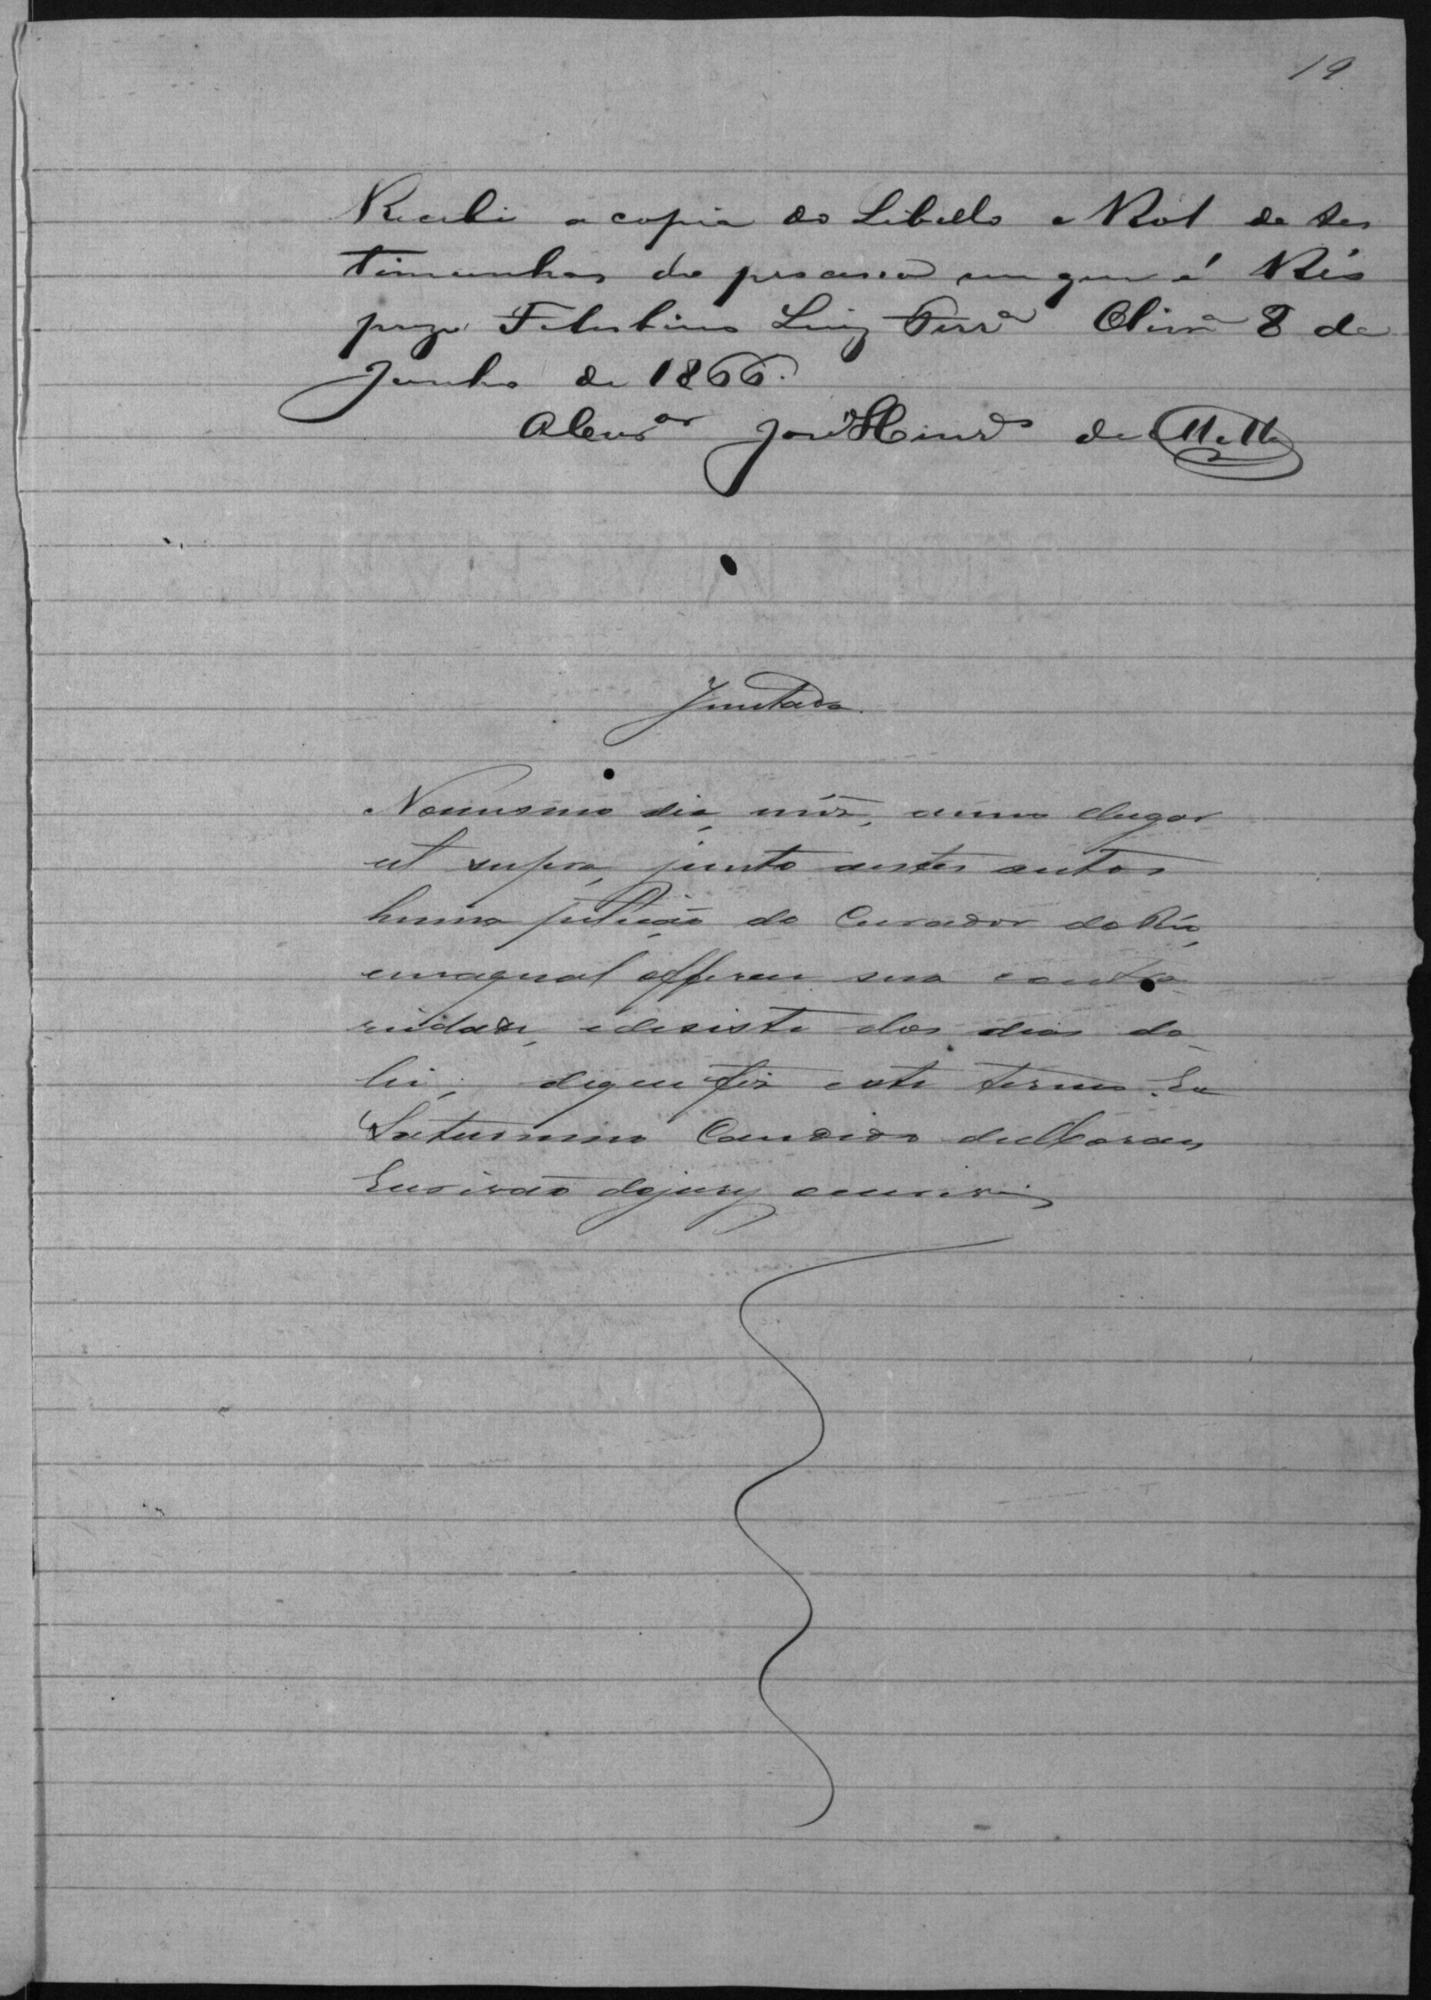 19
Recebi a copia do Libello e Rol de tes
timunhas do processo em que é Réo
prezo Felisbino Luiz Ferrª Olivrª 8 de
Junho de 1866.
O Curºʳ José Henrˢ de Mello
Juntada
No mesmo dia, mez, anno elugar
ut supra, junto aestes autos
huma petição do Curador do Réo,
emaqual offerece sua contra
riedade, edesiste dos dias da
lei; deque fiz este termo. Eu
Saturnino Candido de Moraes,
Escrivão dojury oescrevi